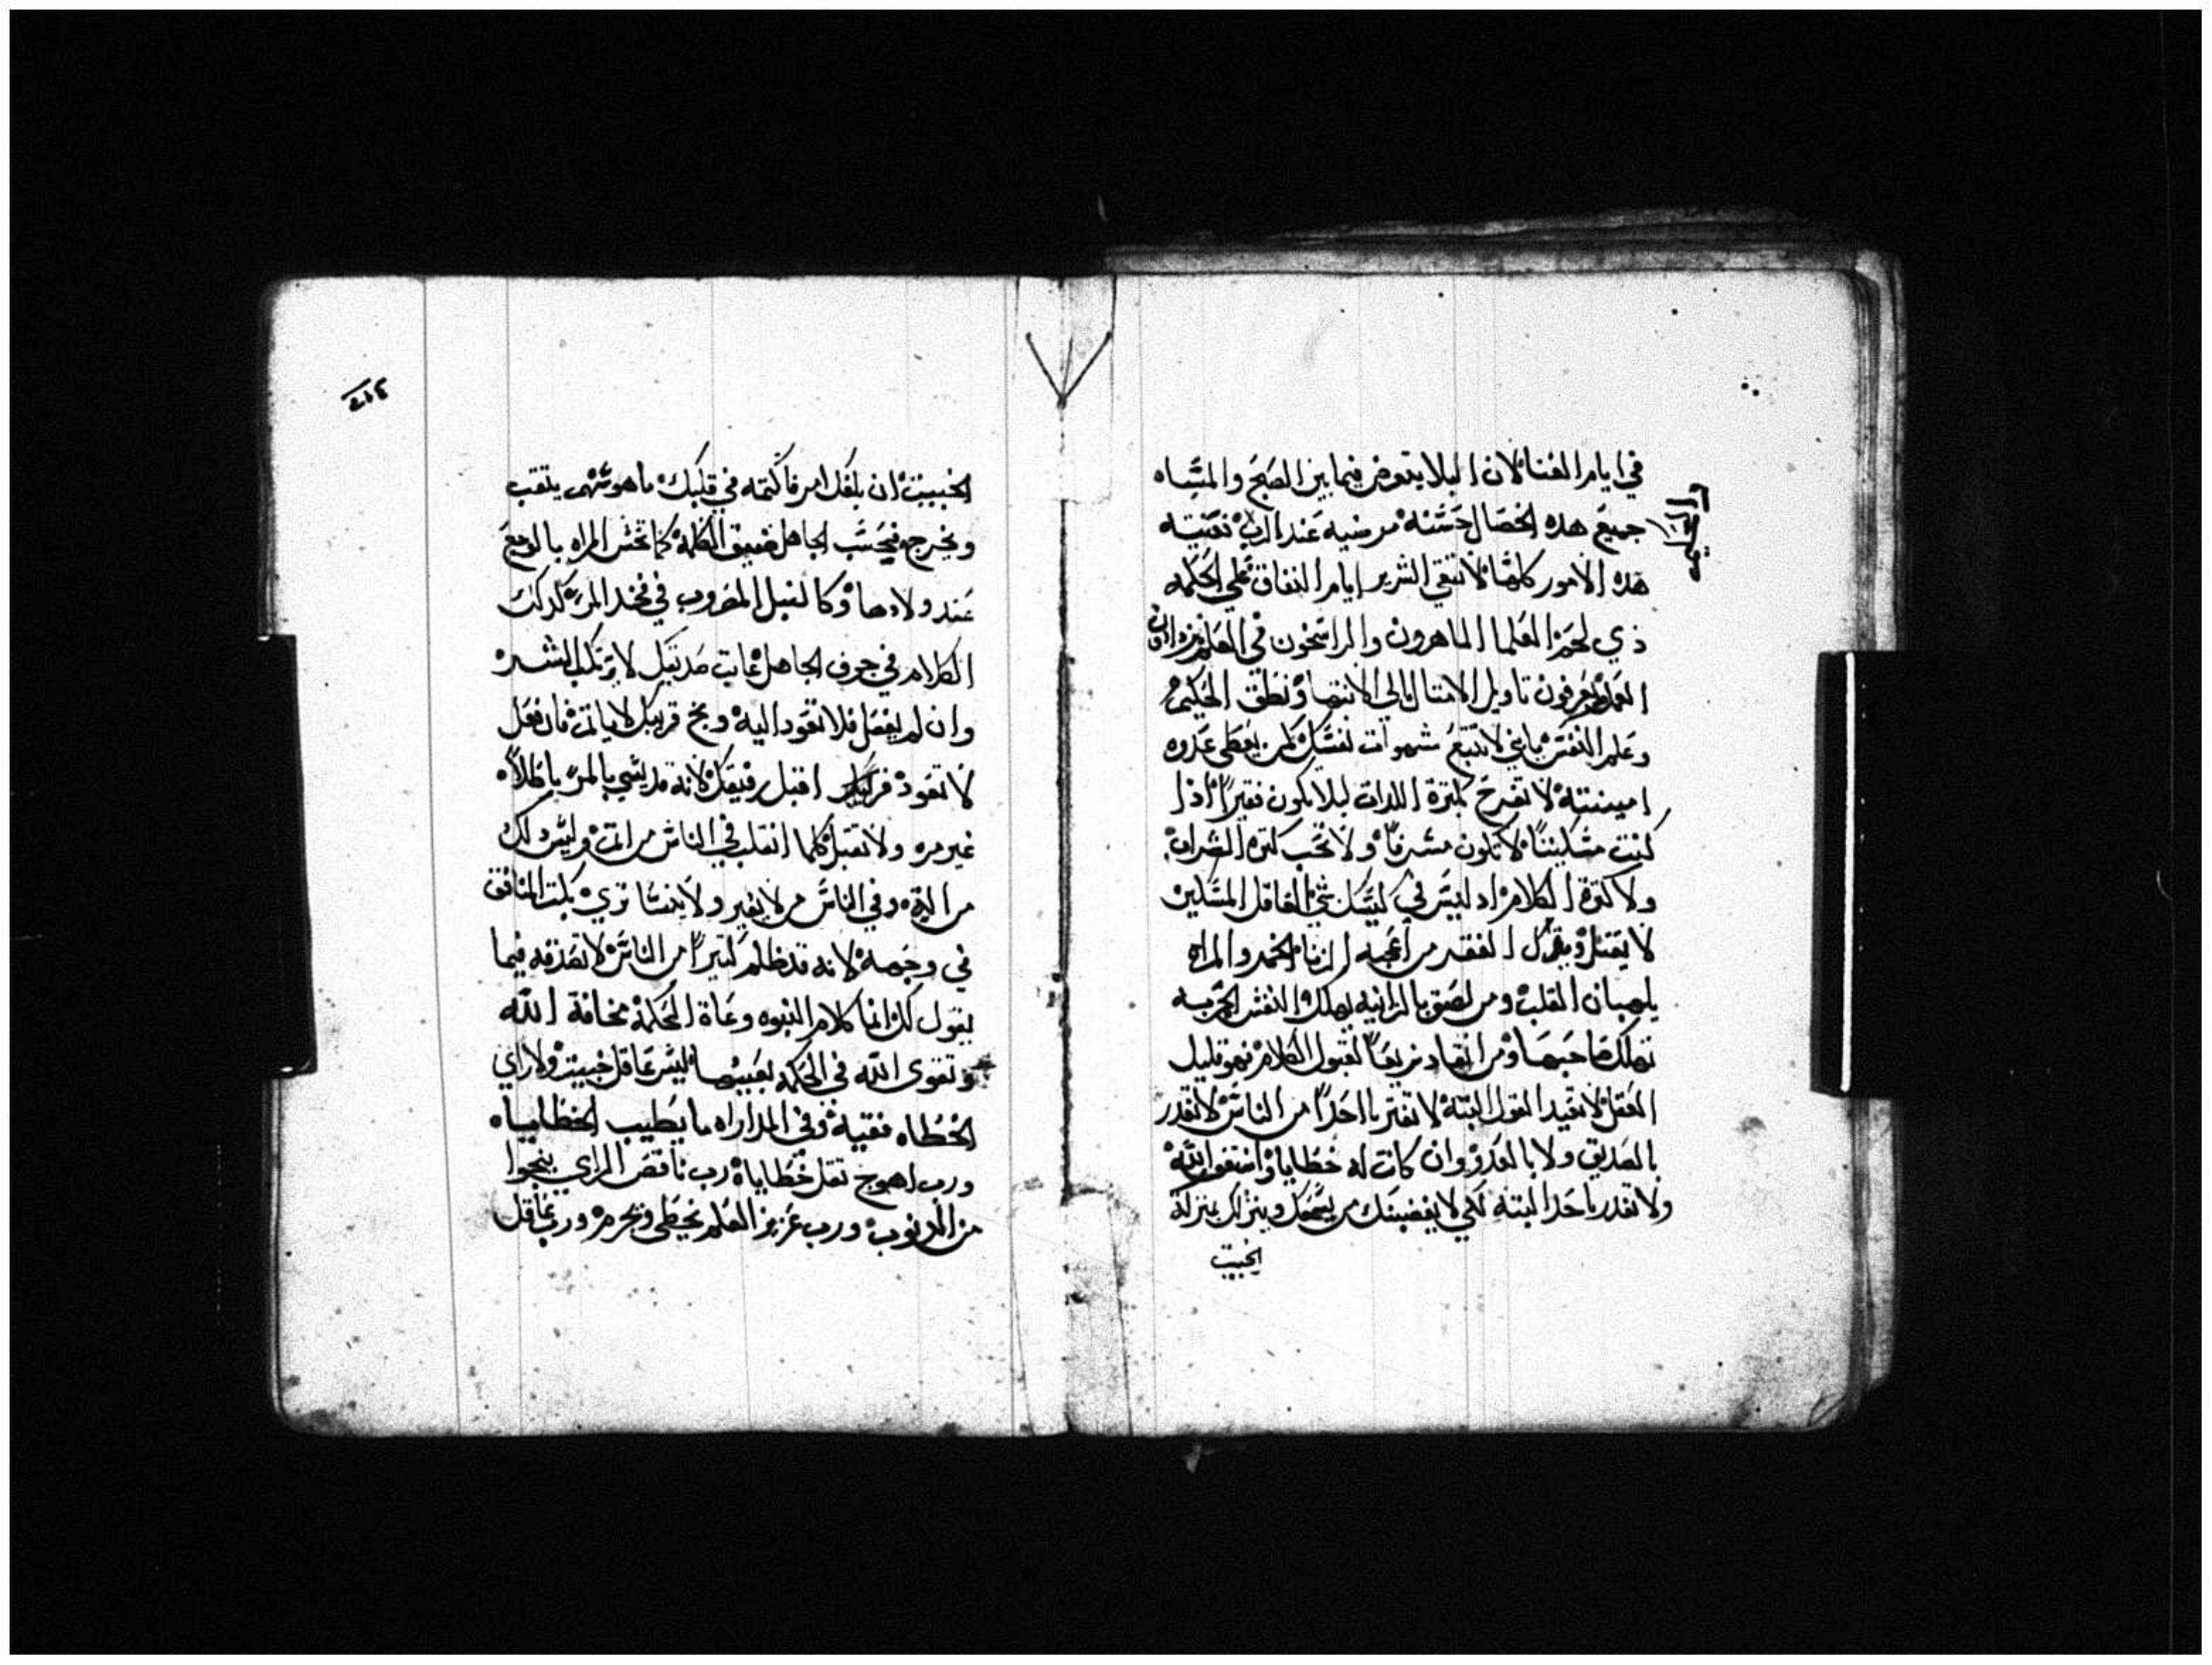 في ايام الغنا لان البلا يتعوض فيما بين الصبح والمساه
جميع هده الخصال حسنه مرضيه عند الرب
هده الامور كلها لا تنقي الشرير ايام النفاق على الحكمه
دي العلما الماهرون والراسخون في العلم
يعرفون تاويل الامتال الي الانتها ونطق الحكيم
وعلم النفس يا بني لا تتبع شهوات نفسك كمن يعطي عدوه
امينته لا تفرح بكترة اللدات ليلا تكون فقيراً ادا
كنت مسكيناً لا تكون مسرفاً ولا تحب كترة الشراب
ولا كترة الكلام اد ليس في كيسك شي الفاعل المسكين
لا يقتل الفقر من اعجبه الزنا الخمر والمراه
يلهبان القلب ومن لصق بالزانيه يهلك النفس
تهلك صاحبها ومن انقاد سريعاً لقبول الكلام فهو قليل
العقل لا تعيد القول البته لا تغتر باحداً من الناس لا تغدر
بالصديق ولا بالعدو وان كانت له خطايا واستغفر الله
ولا تغدر باحد البته لكي لا يغضبنك من يسمعك وينزلك بمنزلة
الخبيت
الخبيت ان بلغك امر فاكتمه في قلبك ما هو سهم يتقب
ويخرج فيحسب الجاهل ضيق الكلمه كما تحس المراه بالوجع
عند ولادها وكالنبل المضروب في فخد المرء كدلك
الكلام في جوف الجاهل عاتب صديقك لا يرتكب الشر
وان لم يفعل فلا تعود اليه وبخ قريبك لا ياتي فان فعل
لا تعود اقبل رفيقك لانه قد يشي بالمرء باطلاً
غير مره ولا تقبل كلما انقلب في الناس من اتم وليس دلك
من الية وفي الناس من لا يغير ولا ينسا تري المنافق
في وجهه لانه قد ظلم كتيراً من الناس لا تصدقه فيما
يقول لك انما كلام النبوه وغاة الحكمه مخافة الله
وتقوى الله في الحكمه ليس عاقل خبيت ولا راي
الخطاه فقيه وفي المداراه ما يطيب الخطاياه
ورب اهوج تقل خطاياه رب ناقص الراي ينجوا
من الدنوب ورب عزيز العلم يخطي ويجرم ورب عاقل